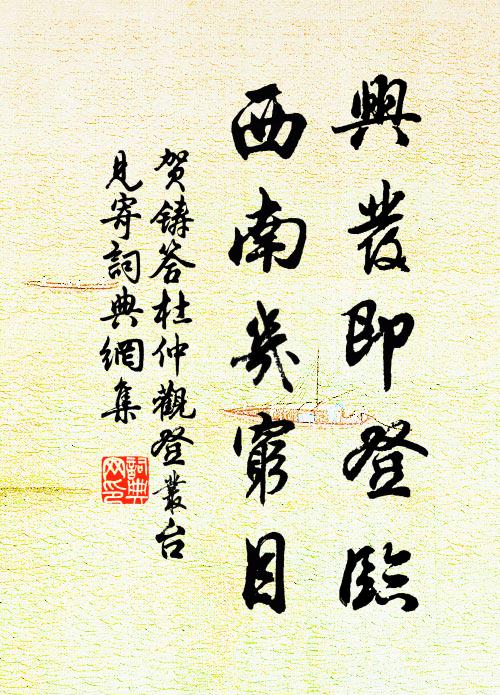 興發即登臨
西南幾窮目
贺鑄答杜仲觀登叢台
見寄詞典網集
詞典
网印